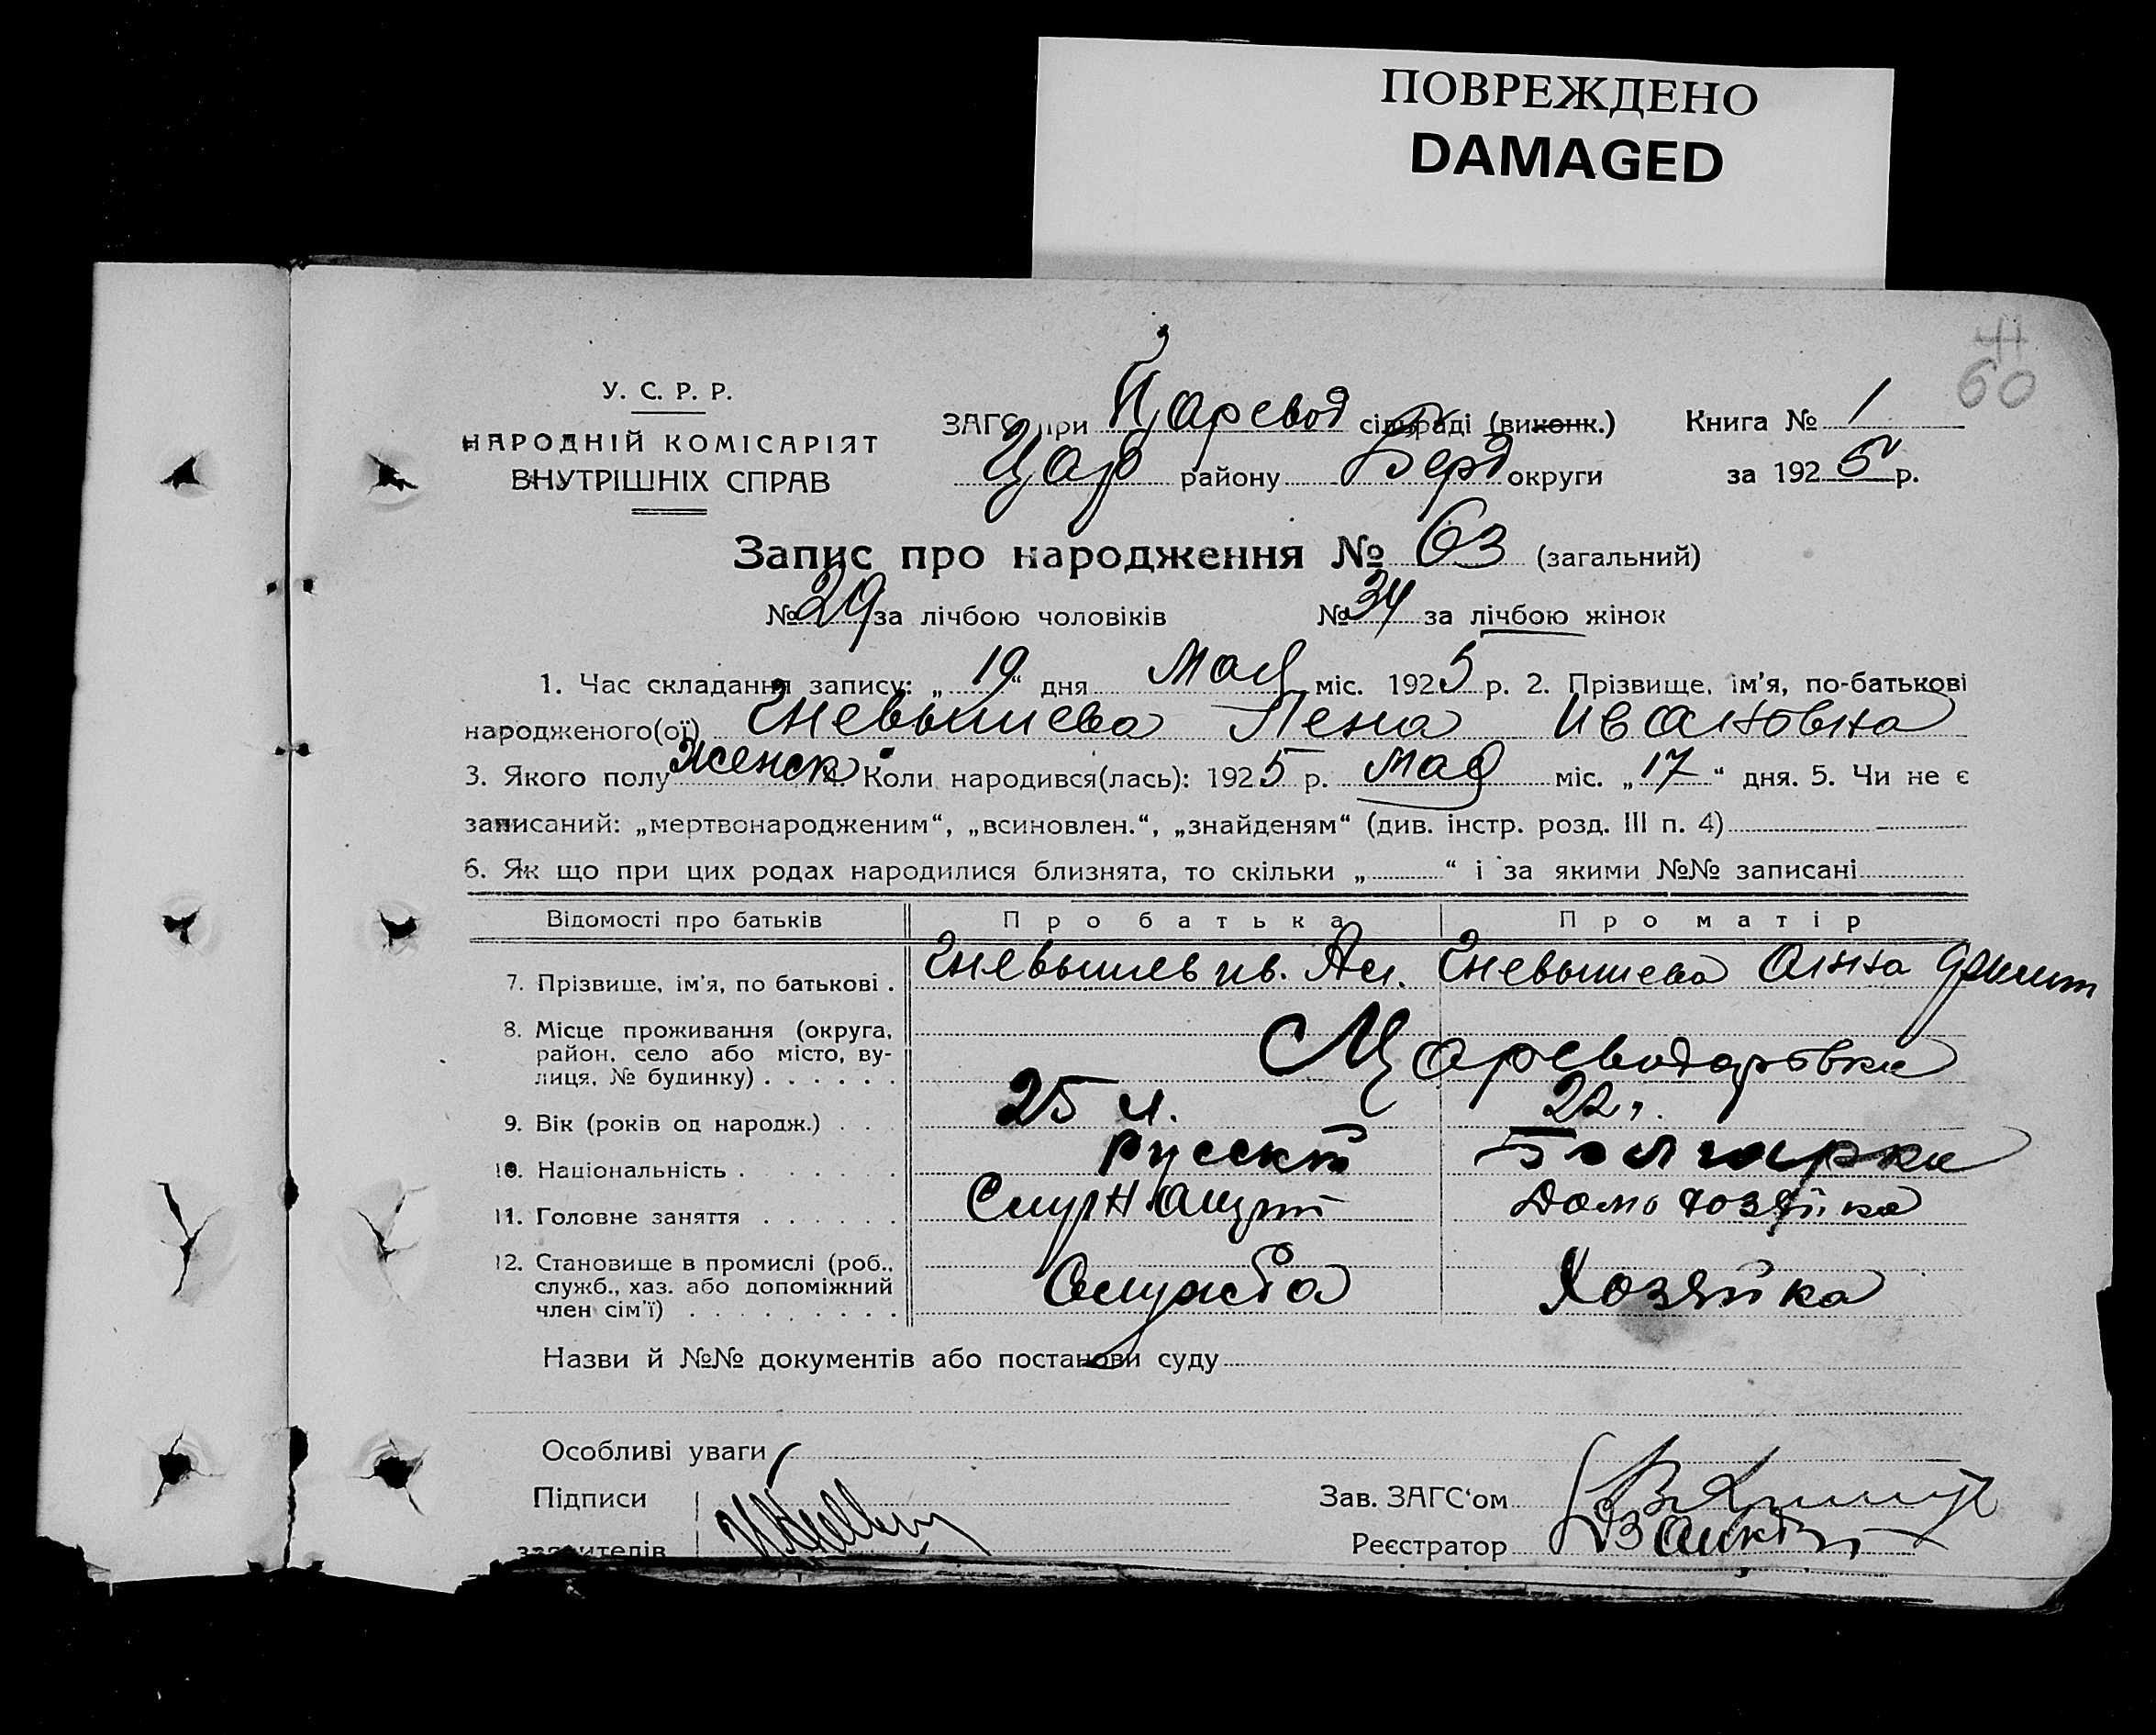 ПОВРЕЖДЕНО
DAMAGED
41
60
У. С. Р. Р.
НАРОДНІЙ КОМІСАРІЯТ
ВНУТРІШНІХ СПРАВ
ЗАГС при Царевод сільраді (виконк.) Книга № 1
Цар району Берд округи за 1925 р.
Запис про народження № 63 (загальний)
№ 29 за лічбою чоловіків № 34 за лічбою жінок
1. Час складання запису: „19“ дня Мая міс. 1925 р. 2. Прізвище, ім'я, по-батькові
народженого(ої) Гневышева Лена Ивановна
3. Якого полу Женск. 4. Коли народився(лась): 1925 р. Мая міс. „17“ дня. 5. Чи не є
записаний: „мертвонародженим“, „всиновлен.“, „знайденям“ (див. інстр. розд. III п. 4)
6. Як що при цих родах народилися близнята, то скільки „ “ і за якими №№ записані
Відомості про батьків Про батька Про матір
7. Прізвище, ім'я, по батькові . Гневышев ив. Гневышева Анна
8. Місце проживання (округа,
район, село або місто, ву-
лиця, № будинку) . . . . . . С Цареводаровка
9. Вік (років од народж.) . . . 25 л. 22 г.
10. Національність . . . . . Русск Болгарка
11. Головне заняття . . . . . . Домохозяйка
12. Становище в промислі (роб.,
служб., хаз. або допоміжний
член сім'ї) . . . . . . . . . Служба Хозяйка
Назви й №№ документів або постанови суду
Особливі уваги
Підписи Зав. ЗАГС'ом
заявителів Реєстратор